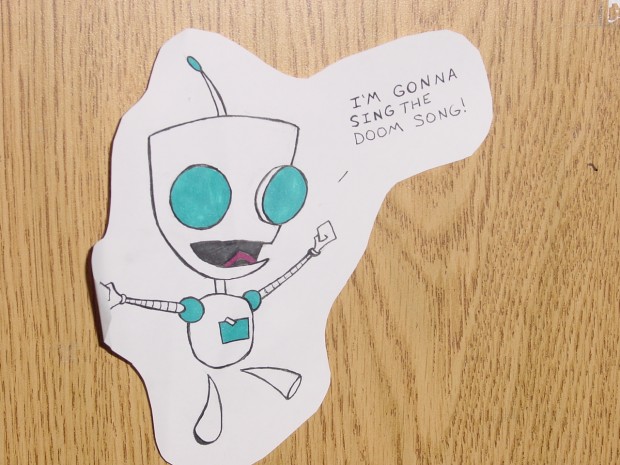 I'M GONNA
SING THE
DOOM SONG!